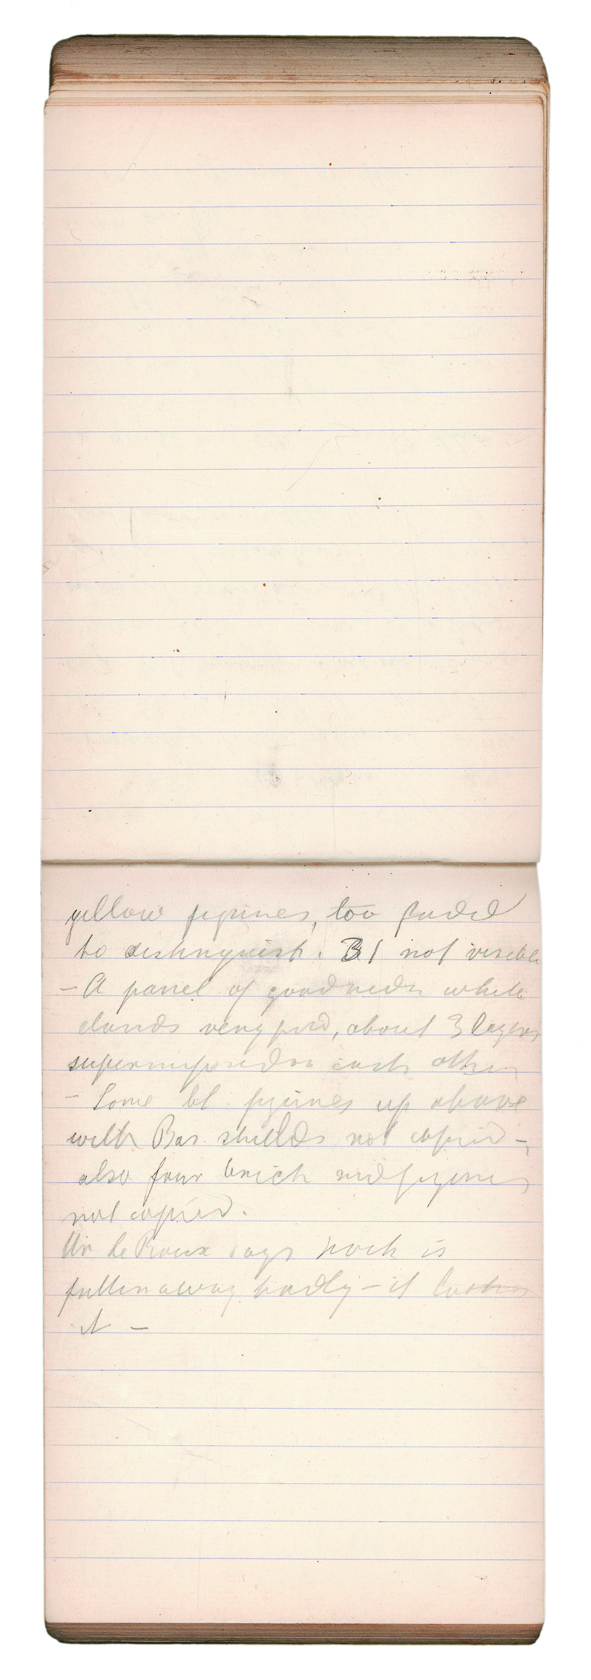 yellow figures, too faded
to distinguish. B1 not visible
- A panel of good red & white
elands very good, about 3 layers
superimposed on each other
- Some bl. figures up above
with Bas. shields not copied -
also four brick red figures
not copied.
Mr. le Roux says rock is
fallen away badly - it looks
it -